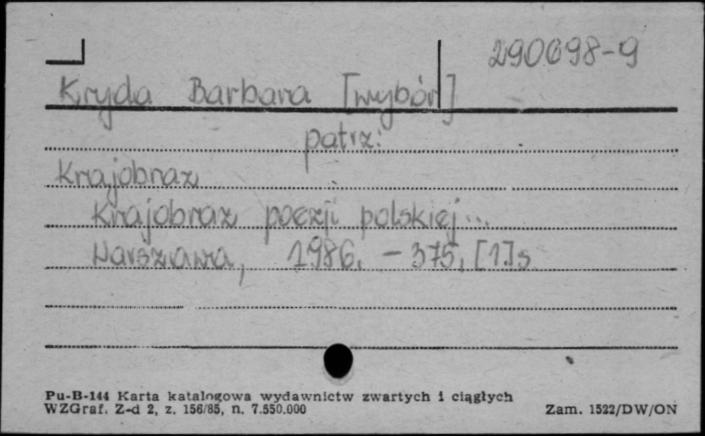 290098-9
Kryda Barbara [wybór]
patrz:
Krajobraz
Krajobraz poezji polskiej...
Warszawa, 1986. - 375, [1] s.
Pu-B-144 Karta katalogowa wydawnictw zwartych i ciągłych
WZGraf. Z-d 2, z. 156/85, n. 7.550.000
Zam. 1522/DW/ON